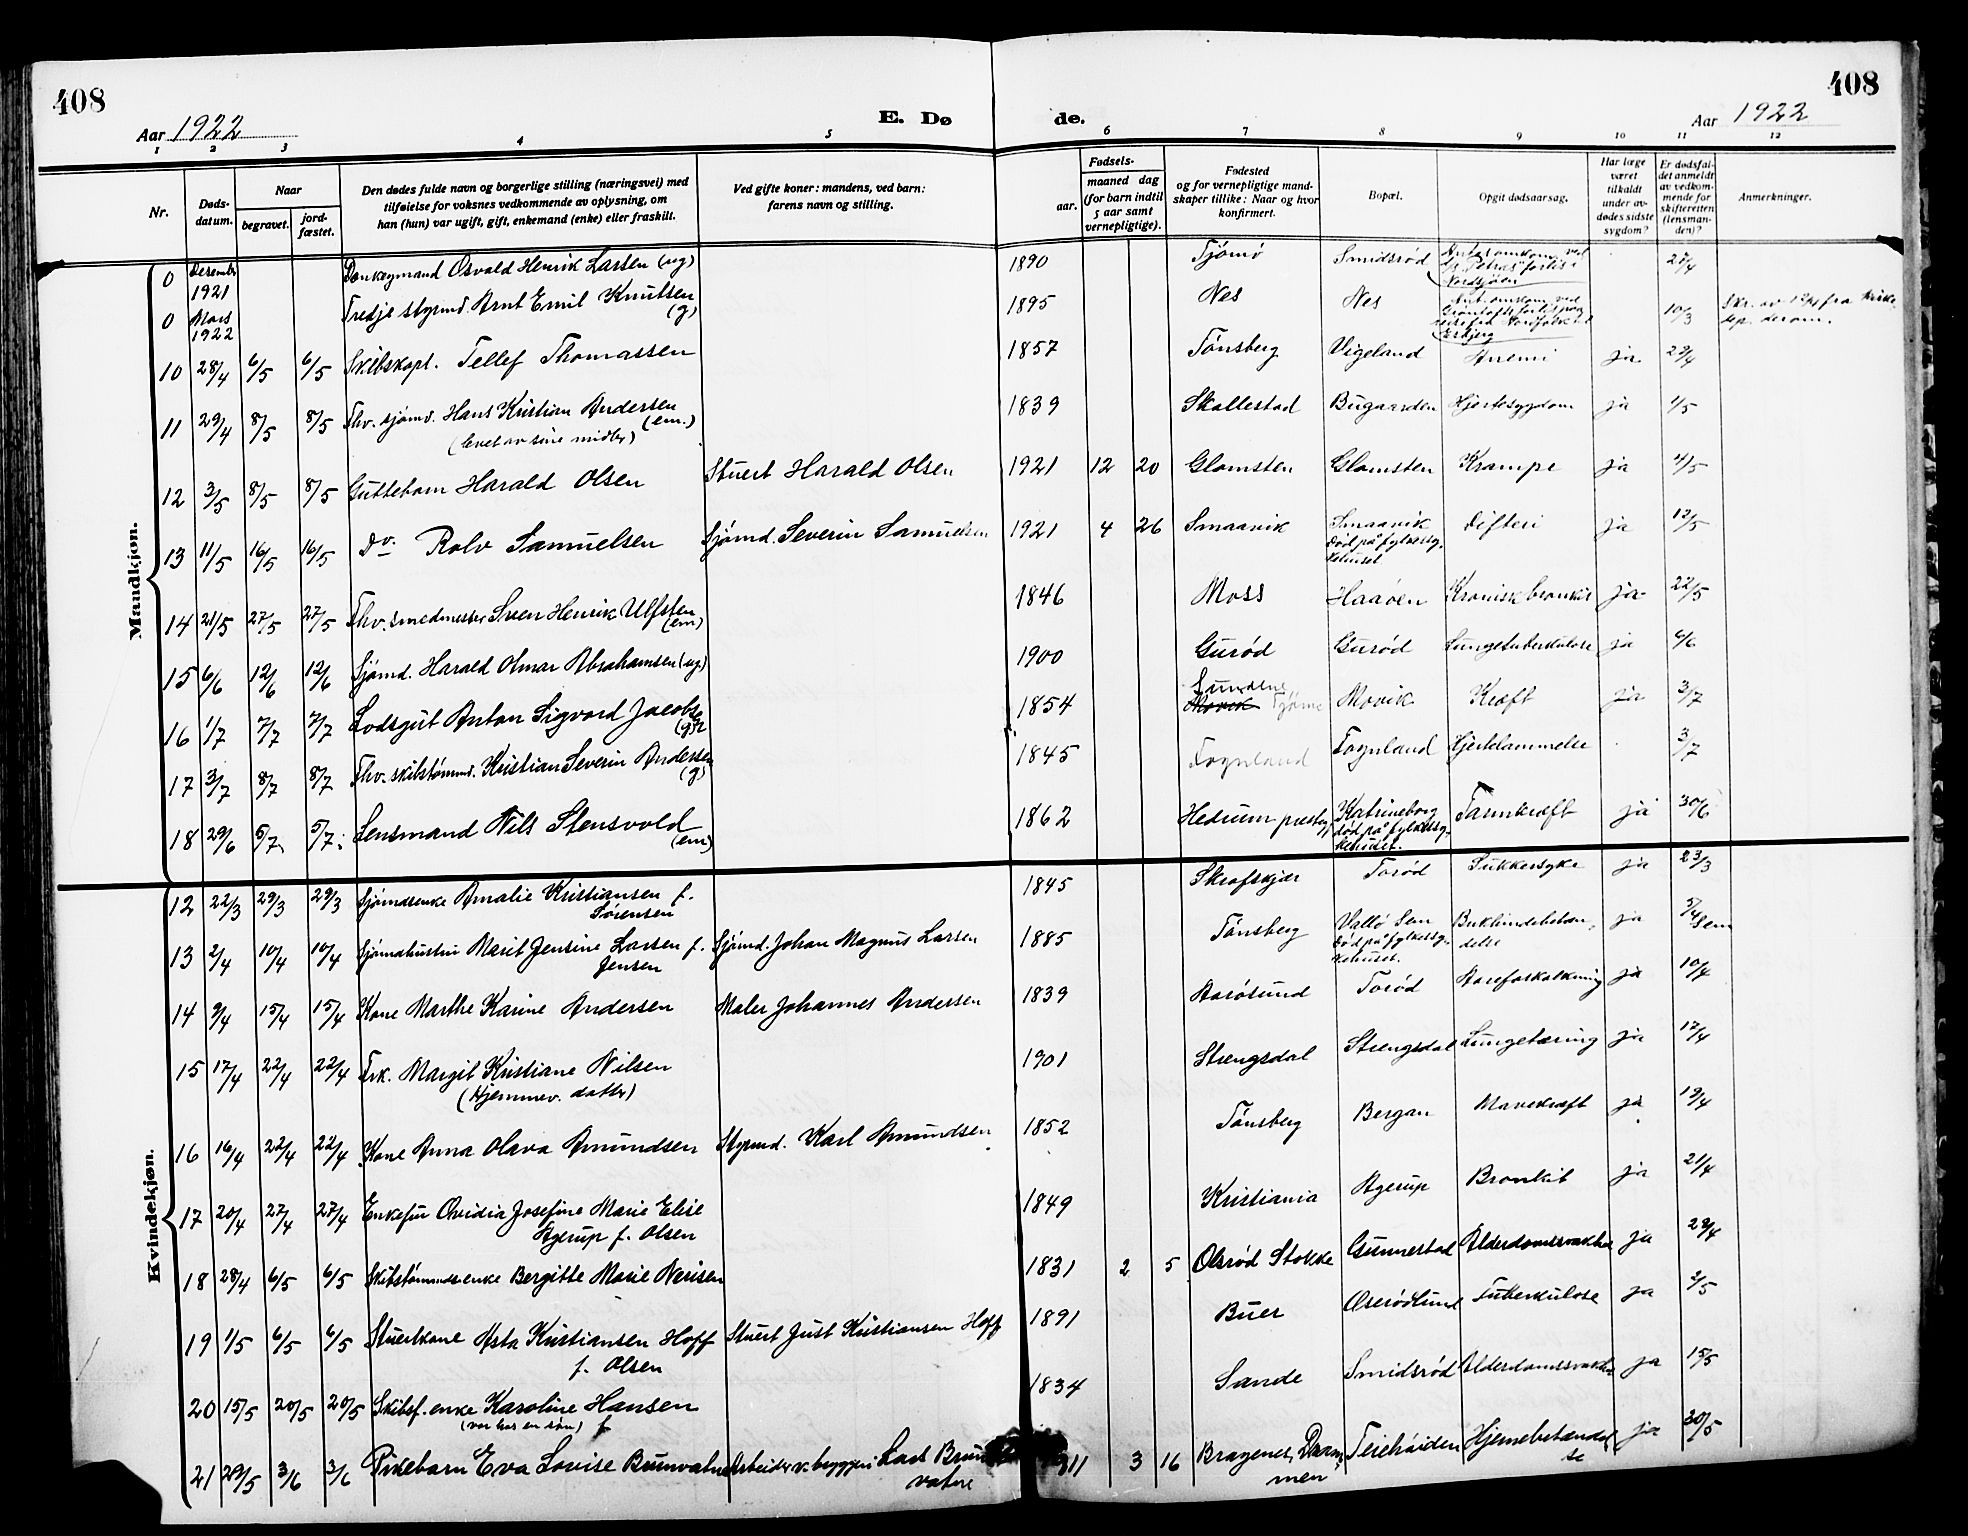 408
408
Aar 1922
E. Dø
de.
Aar 1922
1 2 3 4 5 6 7 8 9 10 11 12
Nr.
Døds-
datum.
Naar
begravet.
jord-
fæstet.
Den dødes fulde navn og borgerlige stilling (næringsvei) med
tilføielse for voksnes vedkommende av oplysning, om
han (hun) var ugift, gift, enkemand (enke) eller fraskilt.
Ved gifte koner: mandens, ved barn:
farens navn og stilling.
Fødsels-
aar.
maaned dag
(for barn indtil
5 aar samt
vernepligtige).
Fødested
og for vernepligtige mand-
skaper tillike: Naar og hvor
konfirmert.
Bopæl.
Opgit dødsaarsag.
Har læge
været
tilkaldt
under av-
dødes sidste
sygdom?
Er dødsfal-
det anmeldt
av vedkom-
mende for
skifteretten
(lensman-
den)?
Anmerkninger.
Mandkjøn.
0 Desember 1921 Donkeymand Osvald Henrik Larsen (ug) 1890 Tjømø Smidsrød
0 Mars 1922 Tredje styrmd. Arnt Emil Knutsen (g) 1895 Nes Nes 10/3
10 28/4 6/5 6/5 Skibskapt. Tellef Thomassen 1857 Tønsberg Vigeland Anemi ja 29/4
11 29/4 8/5 8/5 Fhv. sjømd. Hans Kristian Andersen (em.) 1839 Skallestad Bugaarden Hjertesygdom ja 1/5
(levet av sine midler)
12 3/5 8/5 8/5 Guttebarn Harald Olsen Stuert Harald Olsen 1921 12 20 Glomsten Glomsten Krampe ja 4/5
13 11/5 16/5 16/5 Do. Rolv Samuelsen Sjømd. Severin Samuelsen 1921 4 26 Smaavik Smaavik Difteri ja 12/5
død på fylkessy-
kehuset.
14 21/5 27/5 27/5 Fhv. smedmester Sven Henrik Ulfsten (em) 1846 Moss Haaøen Kronisk bronkit ja 22/5
15 6/6 12/6 12/6 Sjømd. Harald Olmar Abrahamsen (ug) 1900 Gurød Gurød Lungetuberkulose ja 6/6
16 1/7 7/7 7/7 Lodsgut Anton Sigvard Jacobsen (g) 1854 Sundene Tjømø Movik Kræft ja 3/7
17 3/7 8/7 8/7 Fhv. skibstømmd. Kristian Severin Andersen (g) 1845 Fognland Fognland Hjertelammelse 3/7
18 29/6 5/7 5/7 Lensmand Nils Stensvold (em) 1862 Hedrum prestegj. Katrineborg Tarmkræft ja 30/6
død på fylkessy-
kehuset.
Kvindekjøn.
12 22/3 29/3 29/3 Sjømdsenke Amalie Kristiansen f. Sørensen 1845 Skrofskjær Torød Sukkersyke ja 23/3
13 2/4 10/4 10/4 Sjømdhustru Marit Jensine Larsen f. Jensen Sjømd. Johan Magnus Larsen 1885 Tønsberg Vallø Sem Bukhindebetæn-
delse ja 5/4 Sem
død på fylkessy-
kehuset.
14 9/4 15/4 15/4 Kone Marthe Karine Andersen Maler Johannes Andersen 1839 Aarøsund Torød Aareforkalkning ja 10/4
15 17/4 22/4 22/4 Frk. Margit Kristiane Nilsen 1901 Strengsdal Strengsdal Lungetæring ja 17/4
(Hjemmev. datter)
16 16/4 22/4 22/4 Kone Anna Olava Amundsen Styrmd. Karl Amundsen 1852 Tønsberg Bergan Mavekræft ja 19/4
17 20/4 27/4 27/4 Enkefru Ovidia Josefine Marie Elise 1849 Kristiania Agerup Bronkit ja 21/4
Agerup f. Olsen
18 28/4 6/5 6/5 Skibstømmdsenke Bergitte Marie Nerisen 1831 2 5 Olsrød Stokke Gunnestad Alderdomssvakhet ja 29/4
19 1/5 6/5 6/5 Stuertkone Asta Kristiansen Hoff Stuert Just Kristiansen Hoff 1891 Buer Oserødlund Tuberkulose ja 2/5
f. Olsen
20 15/5 20/5 20/5 Skibsf. enke Karoline Hansen 1834 Sande Smidsrød Alderdomssvakhet ja 15/5
(var hos en søn) f.
21 29/5 3/6 3/6 Pikebarn Eva Lovise Brunvatne Arbeider v. bryggeri Lars Brun-
vatne 11 3 16 Bragenes, Dram-
men Teiehøiden Hjernebetændel-
se ja 30/5